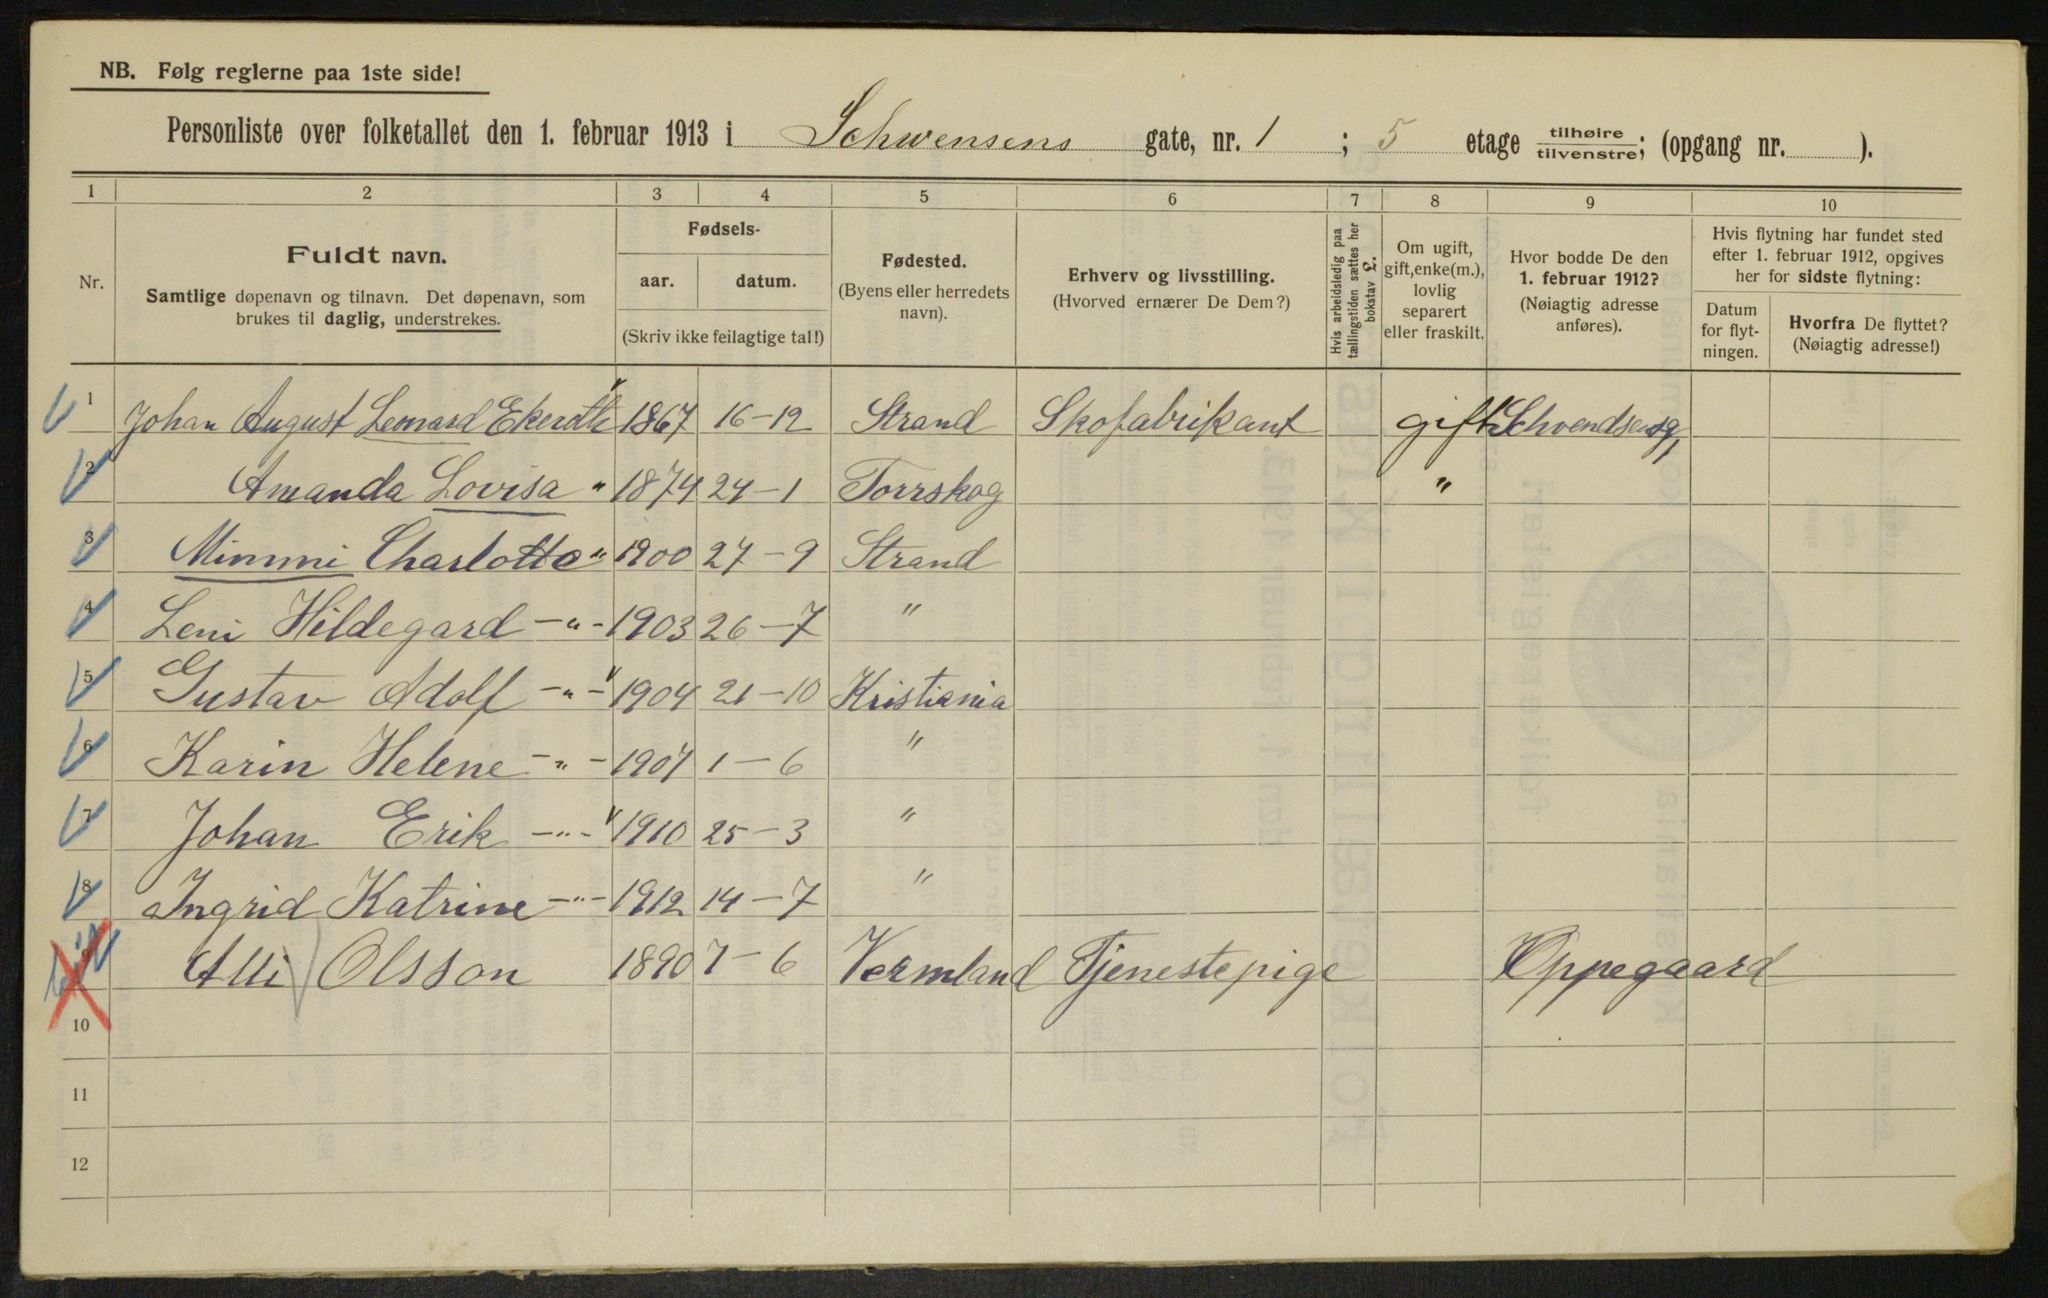 NB. Følg reglerne paa 1ste side!
Personliste over folketallet den 1. februar 1913 i Schwensens gate, nr. 1 ; 5 etage tilhøire/tilvenstre; (opgang nr. ).
1 2 3 4 5 6 7 8 9 10
Nr.
Fuldt navn.
Samtlige døpenavn og tilnavn. Det døpenavn, som
brukes til daglig, understrekes.
Fødsels-
aar.
datum.
(Skriv ikke feilagtige tal!)
Fødested.
(Byens eller herredets
navn).
Erhverv og livsstilling.
(Hvorved ernærer De Dem?)
Hvis arbeidsledig paa
tællingstiden sættes her
bokstav £.
Om ugift,
gift, enke(m.),
lovlig
separert
eller fraskilt.
Hvor bodde De den
1. februar 1912?
(Nøiagtig adresse
anføres).
Hvis flytning har fundet sted
efter 1. februar 1912, opgives
her for sidste flytning:
Datum
for flyt-
ningen.
Hvorfra De flyttet?
(Nøiagtig adresse!)
1 Johan August Lennard Ekeroth 1867 16-12 Strand Skofabrikant gift Schvendsensg 1
2 Amanda Lovisa " 1874 24-1 Torrskog "
3 Mimmi Charlotte " 1900 27-9 Strand
4 Leni Hildegard -"- 1903 26-7 "
5 Gustav Adolf -"- 1904 21-10 Kristiania
6 Karin Helene -"- 1907 1-6 "
7 Johan Erik -"- 1910 25-3 "
8 Ingrid Katrine -"- 1912 14-7 "
9 Alli Olsson 1890 7-6 Vermland Tjenestepige Oppegaard
10
11
12